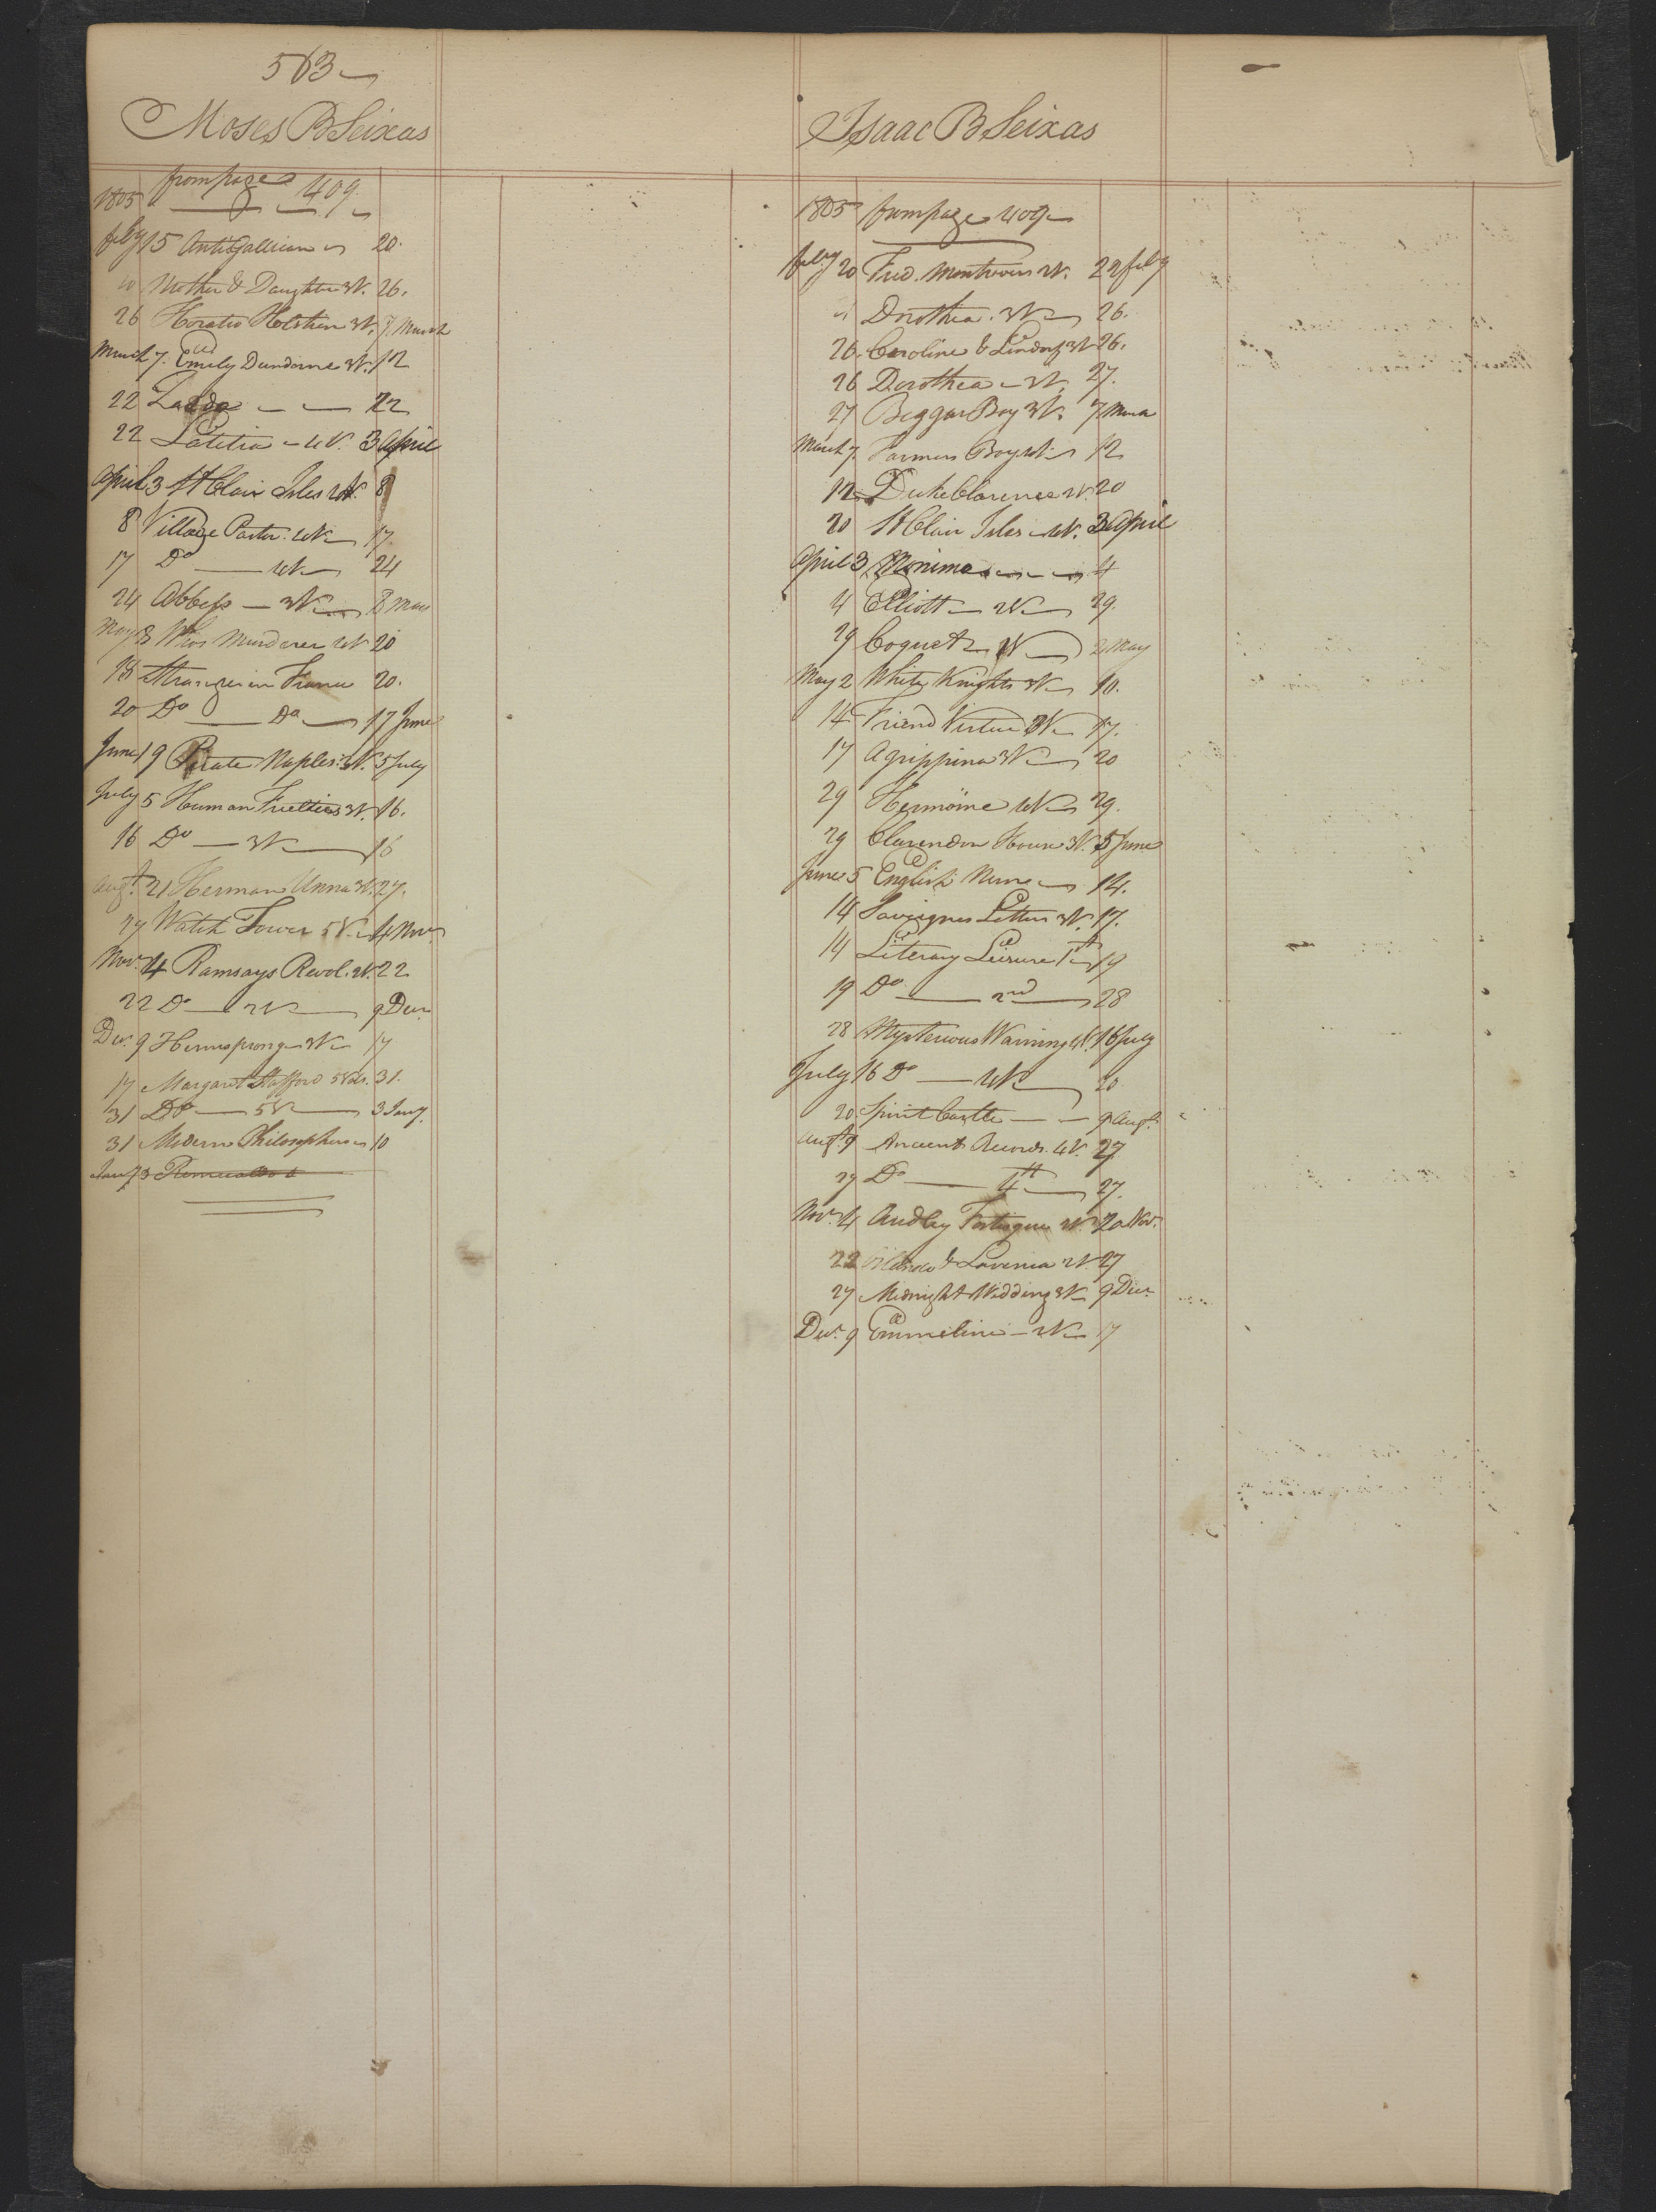 563
Moses B Seixas
from page 409
1805
feby 15 Antigallican 20.
20 Mother & Daughter 3V. 26.
26 Horatio Holstein 3V. 7 March
March 7. Emily Dundorne 3V. 12
22 22
22 Letitia 4V. 3 April
April 3 St Clair Isles 4V. 8
8 Village Pastor 4V 17.
17 Do 4V 24
24 Abbess 3V 8 May
May 8 Who's Murderer 4V 20
18 Stranger in France 20.
20 Do Do 17 June
June 19 Pirate Naples 3V. 5 July
July 5 Human Frielties 3V. 16.
16 Do 3V 16
Augt. 21 Herman Unna 3V. 27.
27 Watch Tower 5V. 4 Nov
Nov. 4 Ramsays Revol. 2V. 22
22 Do 2V 9 Dec
Dec. 9 Hermsprong 3V 17
17 Margaret Stafford 5 Vols. 31.
31 Do 5V 3 Jany.
31 Modern Philosophers 10
Jany 3
Isaac B Seixas
1805 from page 409
feby 20 Fred. Montrovers 2V. 22 feby
Dorothea. 3V 26.
26. Caroline & Lindorf 3V 26.
26 Dorothea 3V. 27.
27 Beggar Boy 3V. 7 March
March 7. Farmers Boy 4V 12
12 Duke Clarence 4V. 20
20 St Clair Isles 4V. 3 April
April 3 Monima 4
4 Elliott 2V 29.
29 Coquet 2V 2 May
May 2 White Knights 3V 10.
14 Friend Virtue 3V 17.
17 Agrippina 3V 20
29 Hermoine 4V 29.
29 Clarendon House 3V. 5 June
June 5 English Nun 14.
14 Savirgnes Letters 3V. 17.
14 Literary Leisure 1st 19
19 Do 2nd 28
28 Mysterious Warning 4V. 16 July
July 16 Do 4V 20
20. Spirit Castle 9 Augt.
Augt. 9 Ancient Records. 4V. 27
27 Do 4th 27.
Nov. 4 Audley Fortisque 2V. 20 Nov.
22 & Lavinia 2V. 27
27 Midnight Wedding 3V 9 Dec.
Dec. 9 Emmeline 2V 17